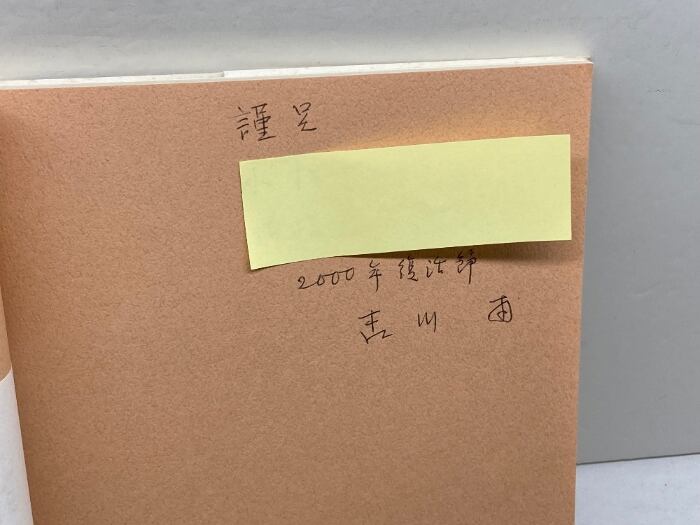 謹呈
2000年復活節
吉川 甫